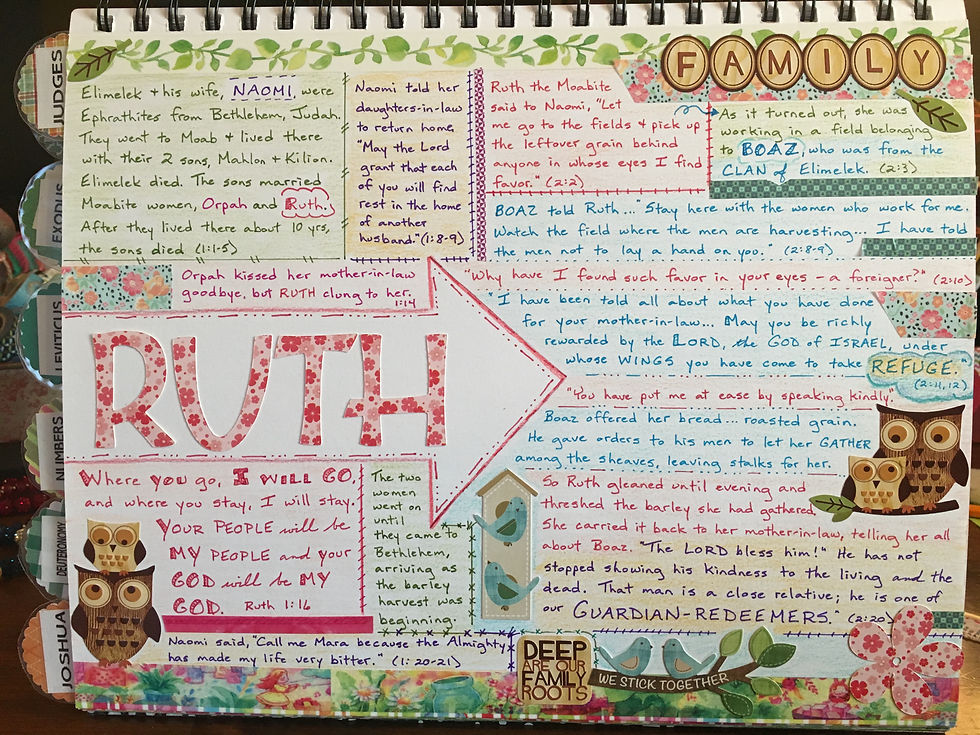 JUDGES
EXODUS
LEVITICUS
NUMBERS
DEUTERONOMY
JOSHUA
FAMILY
Elimelek + his wife, NAOMI, were
Ephrathites from Bethlehem, Judah.
They went to Moab + lived there
with their 2 sons, Mahlon + Kilion.
Elimelek died. The sons married
Moabite women, Orpah and Ruth.
After they lived there about 10 yrs,
the sons died (1:1-5)
Naomi told her
daughters-in-law
to return home,
"May the Lord
grant that each
of you will find
rest in the home
of another
husband." (1:8-9)
Ruth the Moabite
said to Naomi, "Let
me go to the fields + pick up
the leftover grain behind
anyone in whose eyes I find
favor." (2:2)
As it turned out, she was
working in a field belonging
to BOAZ, who was from the
CLAN of Elimelek. (2:3)
BOAZ told Ruth... "Stay here with the women who work for me.
Watch the field where the men are harvesting... I have told
the men not to lay a hand on you." (2:8-9)
Orpah kissed her mother-in-law
goodbye, but RUTH clung to her.
1:14
"Why have I found such favor in your eyes - a foreigner?" (2:10)
"I have been told all about what you have done
for your mother-in-law... May you be richly
rewarded by the LORD, the GOD of ISRAEL, under
whose WINGS you have come to take REFUGE."
(2:11,12)
RUTH
"You have put me at ease by speaking kindly."
Boaz offered her bread... roasted grain.
He gave orders to his men to let her GATHER
among the sheaves, leaving stalks for her.
Where you go, I WILL GO,
and where you stay, I will stay.
YOUR PEOPLE will be
MY PEOPLE and your
GOD will be MY
GOD. Ruth 1:16
The two
women
went on
until
they came to
Bethlehem,
arriving as
the barley
harvest was
beginning.
So Ruth gleaned until evening and
threshed the barley she had gathered.
She carried it back to her mother-in-law, telling her all
about Boaz. "The LORD bless him!" He has not
stopped showing his kindness to the living and the
dead. That man is a close relative; he is one of
our GUARDIAN-REDEEMERS." (2:20)
Naomi said, "Call me Mara because the Almighty
has made my life very bitter." (1:20-21)
DEEP
ARE OUR
FAMILY
ROOTS
WE STICK TOGETHER